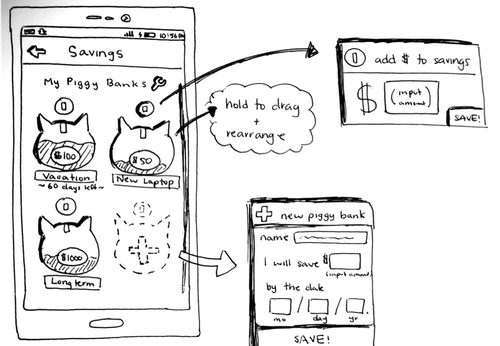 10:56 PM
Savings
My Piggy Banks
$100
Vacation
~ 60 days left ~
$50
New Laptop
$1000
Long term
hold to drag
+
rearrange
add $ to savings
$ (input
amount)
SAVE!
+ new piggy bank
name
I will save $
(input amount)
by the date
/ / .
mo day yr
SAVE!